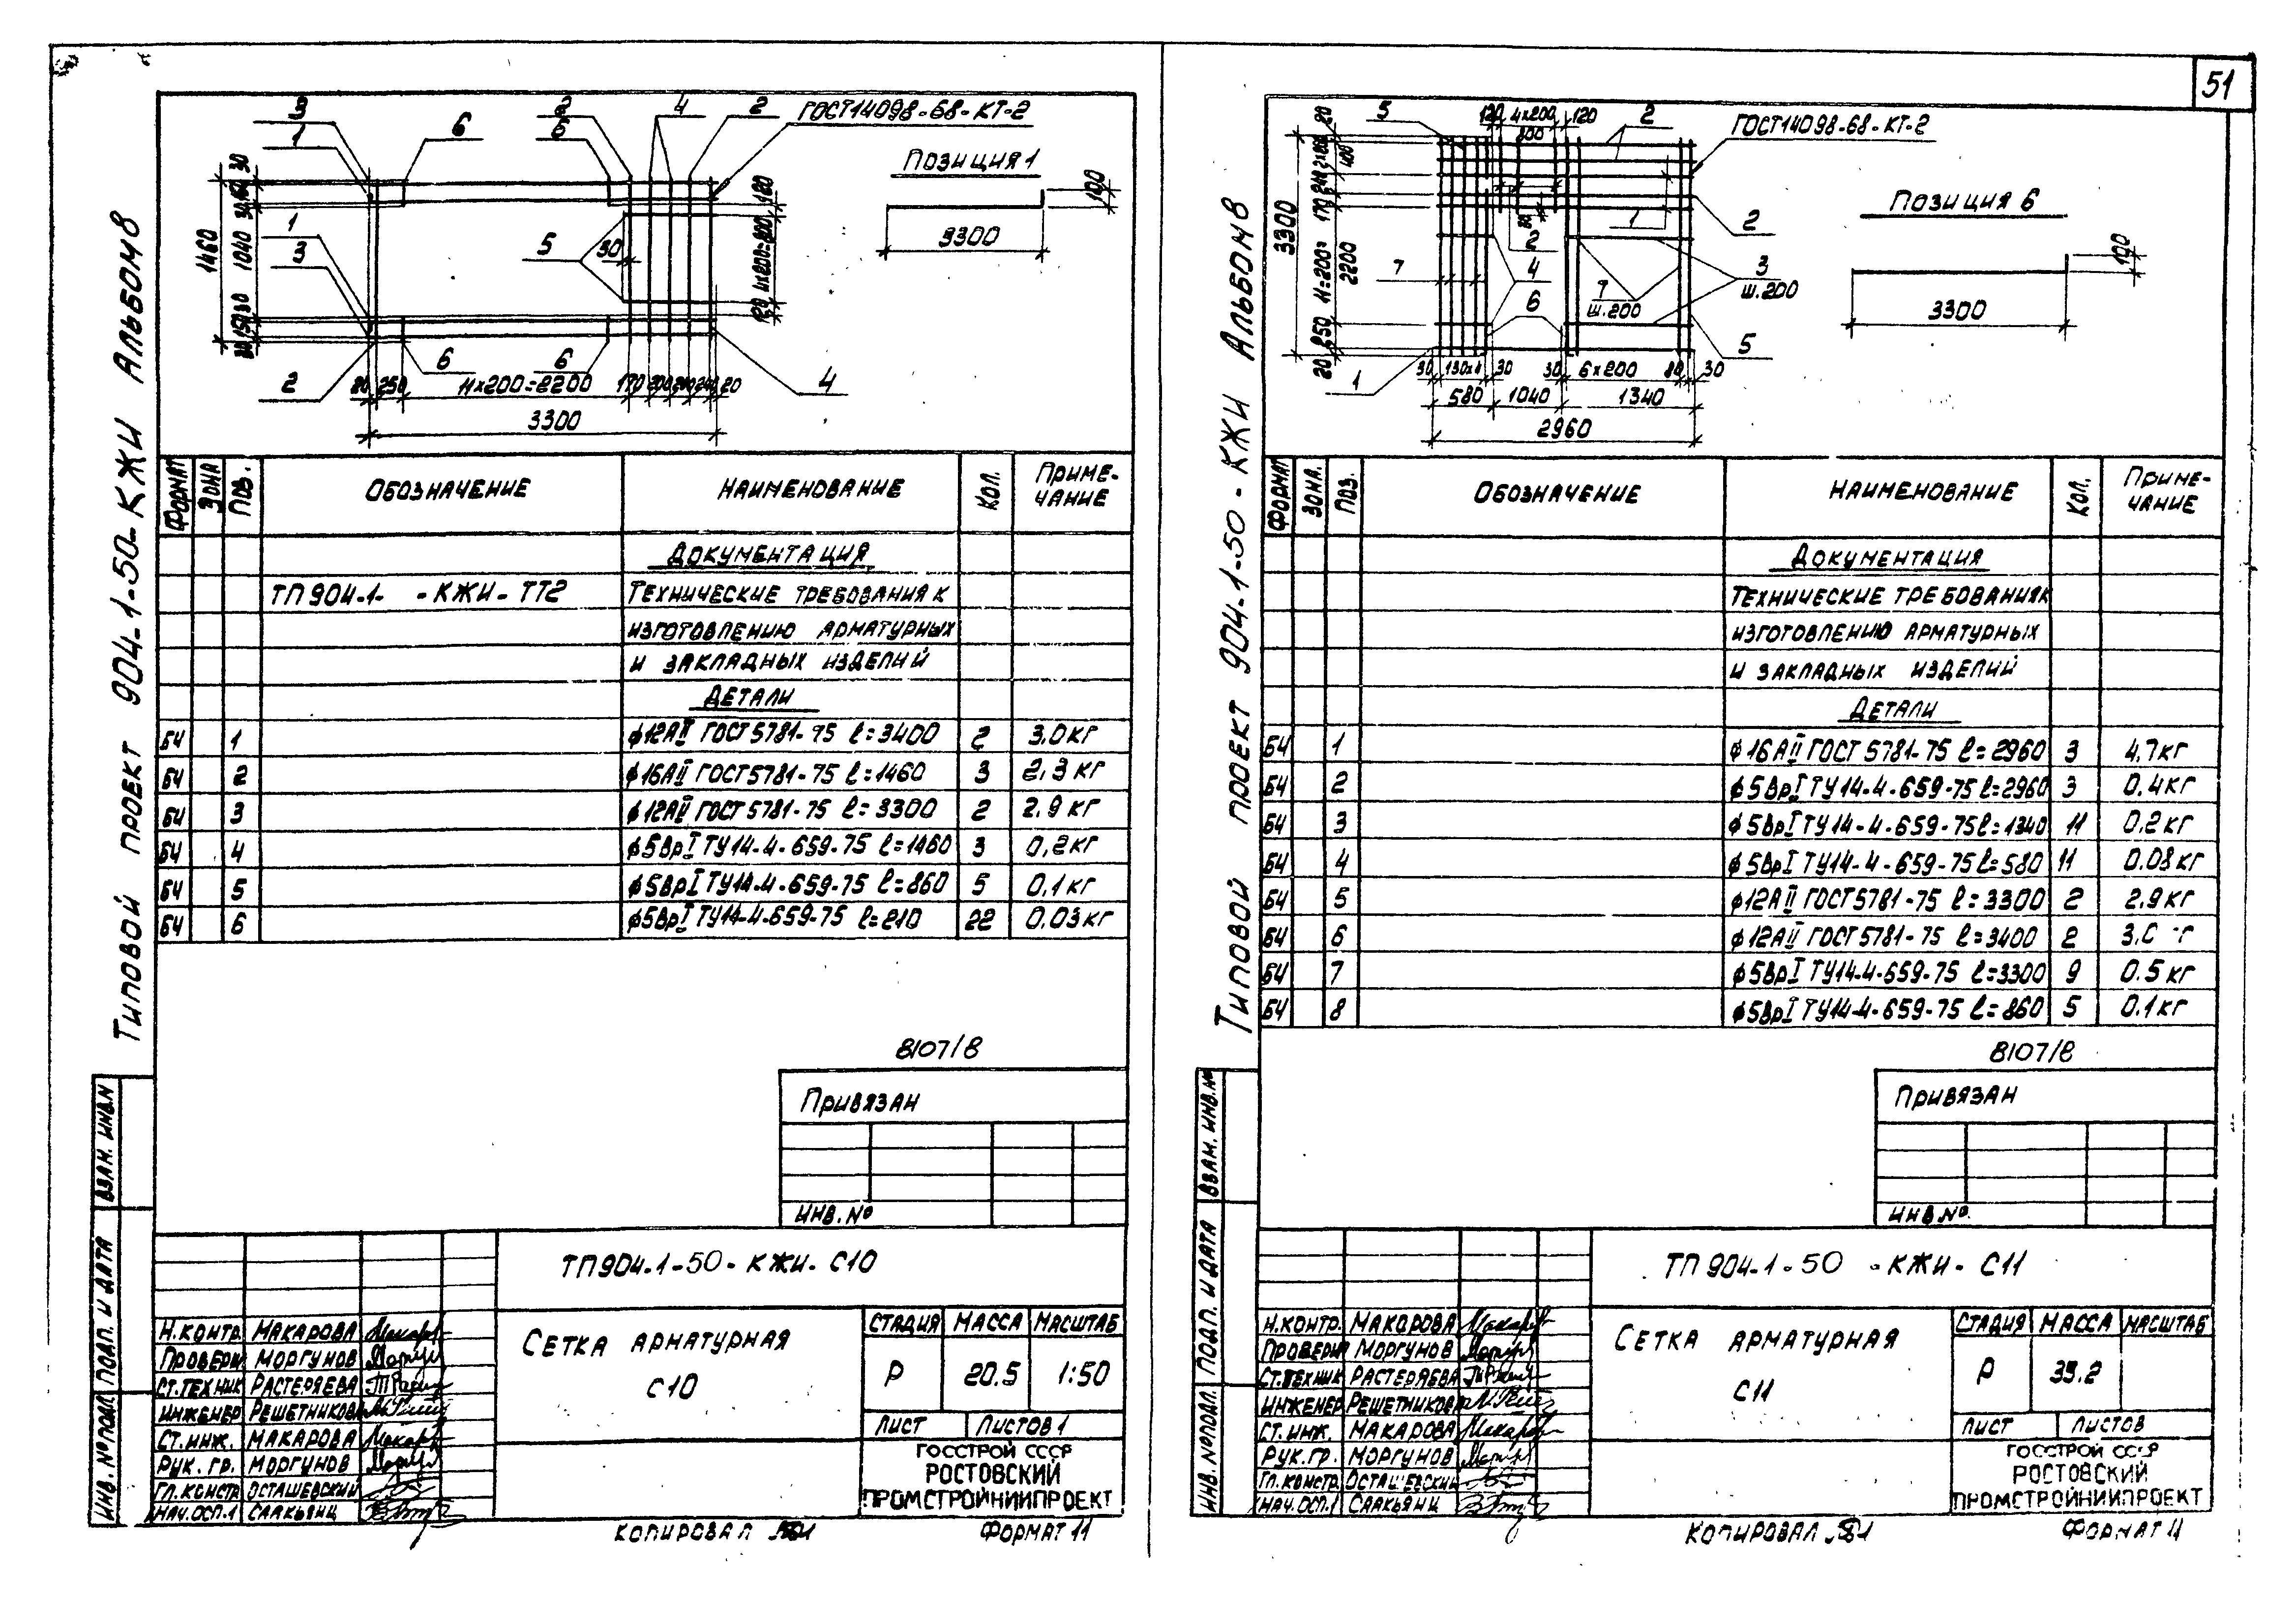 51
Типовой проект 904-1-50-КЖИ Альбом 8
3
1
6
2
6
4
2
ГОСТ14098-68-КТ-2
Позиция 1
3300
100
1460
1040
1
3
5
30
4х200=800
120
2
6
6
4
20 250 11х200=2200 170 200 200 20
3300
Формат Зона Поз. Обозначение Наименование Кол. Приме-
чание
Документация
ТП904-1- -КЖИ-ТТ2 Технические требования к
изготовлению арматурных
и закладных изделий
Детали
БЧ 1 ϕ12АII ГОСТ5781-75 ℓ=3400 2 3.0кг
БЧ 2 ϕ16АII ГОСТ5781-75 ℓ=1460 3 2,3 кг
БЧ 3 ϕ12АII ГОСТ5781-75 ℓ=3300 2 2,9 кг
БЧ 4 ϕ5ВрI ТУ14-4-659-75 ℓ=1460 3 0,2кг
БЧ 5 ϕ5ВрI ТУ14-4-659-75 ℓ=860 5 0,1 кг
БЧ 6 ϕ5ВрI ТУ14-4-659-75 ℓ=210 22 0,03кг
8107/8
Привязан
Инв.№
Взам. инв.№
Подп. и дата
Инв.№подл.
ТП904-1-50-КЖИ-С10
Сетка арматурная
С10
Стадия Масса Масштаб
Р 20.5 1:50
Лист Листов 1
Госстрой СССР
РОСТОВСКИЙ
ПРОМСТРОЙНИИПРОЕКТ
Н.контр. Макарова
Провери Моргунов
Ст.техник Растеряева
Инженер Решетникова
Ст.инж. Макарова
Рук. гр. Моргунов
Гл.констр Осташевский
Нач.осп.1 Саакьянц
Копировал
Формат 11
Типовой проект 904-1-50-КЖИ Альбом 8
5
120 4х200 120
800
2
ГОСТ14098-68-КТ-2
Позиция 6
3300
100
3300
11=200=
2200
1
2
2
7
4
6
3
ш.200
7
ш.200
5
1
30 130х4 30 30 6х200 80 30
580 1040 1340
2960
Формат Зона. Поз. Обозначение Наименование Кол. Приме-
чание
Документация
Технические требования к
изготовлению арматурных
и закладных изделий
Детали
БЧ 1 ϕ16АII ГОСТ 5781-75 ℓ=2960 3 4,7кг
БЧ 2 ϕ5ВрI ТУ14-4-659-75 ℓ=2960 3 0.4кг
БЧ 3 ϕ5ВрI ТУ14-4-659-75 ℓ=1340 11 0.2кг
БЧ 4 ϕ5ВрI ТУ14-4-659-75 ℓ=580 11 0.08кг
БЧ 5 ϕ12АII ГОСТ5781-75 ℓ=3300 2 2.9кг
БЧ 6 ϕ12АII ГОСТ5781-75 ℓ=3400 2
БЧ 7 ϕ5ВрI ТУ14-4-659-75 ℓ=3300 9 0.5кг
БЧ 8 ϕ5ВрI ТУ14-4-659-75 ℓ=860 5 0.1кг
8107/8
Привязан
Инв.№.
Взам. инв.№
Подп. и дата
Инв.№подл.
ТП904-1-50 -КЖИ-С11
Сетка арматурная
С11
Стадия Масса Масштаб
Р 39.2
Лист Листов
Госстрой СССР
РОСТОВСКИЙ
ПРОМСТРОЙНИИПРОЕКТ
Н.контр. Макарова
Провери Моргунов
Ст.техник Растеряева
Инженер Решетникова
Ст.инж. Макарова
Рук.гр. Моргунов
Гл.констр Осташевский
Нач.осп.1 Саакьянц
Копировал
Формат 11